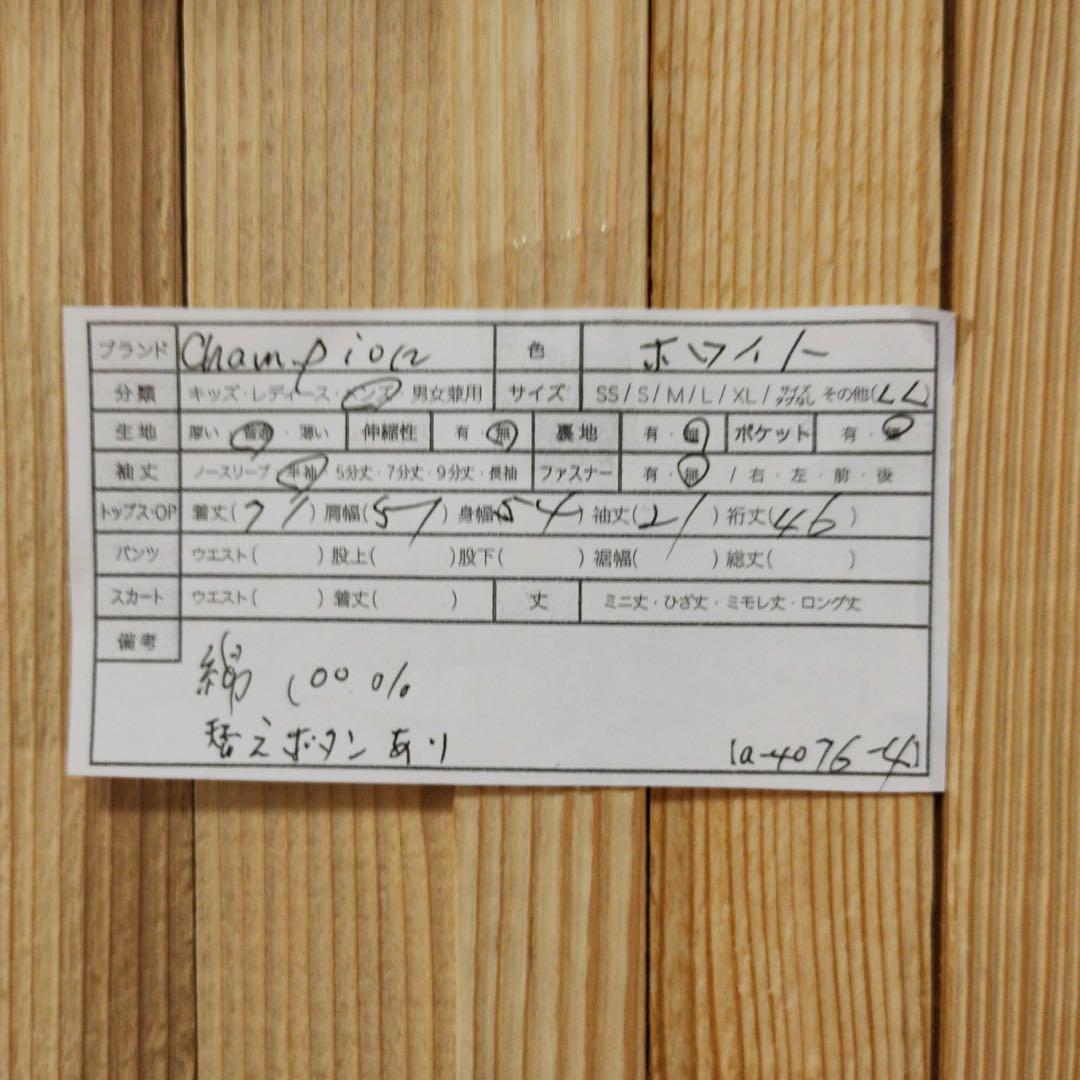 ブランド Champion 色 ホワイト
分類 キッズ・レディース・メンズ・男女兼用 サイズ SS / S / M / L / XL / サイズタグなし その他(LL)
生地 厚い・普通・薄い 伸縮性 有・無 裏地 有・無 ポケット 有・無
袖丈 ノースリーブ・半袖・5分丈・7分丈・9分丈・長袖 ファスナー 有・無 / 右・左・前・後
トップス・OP 着丈( ) 肩幅(57) 身幅(54) 袖丈(21) 裄丈(46)
パンツ ウエスト( ) 股上( ) 股下( ) 裾幅( ) 総丈( )
スカート ウエスト( ) 着丈( ) 丈 ミニ丈・ひざ丈・ミモレ丈・ロング丈
備考
綿 100%
替えボタンあり
[a-4076-4]